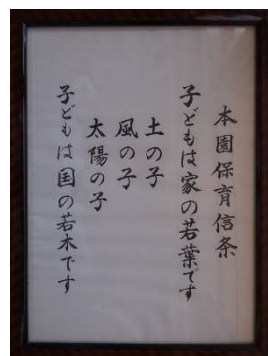 本園保育信条
子どもは家の若葉です
土の子
風の子
太陽の子
子どもは国の若木です